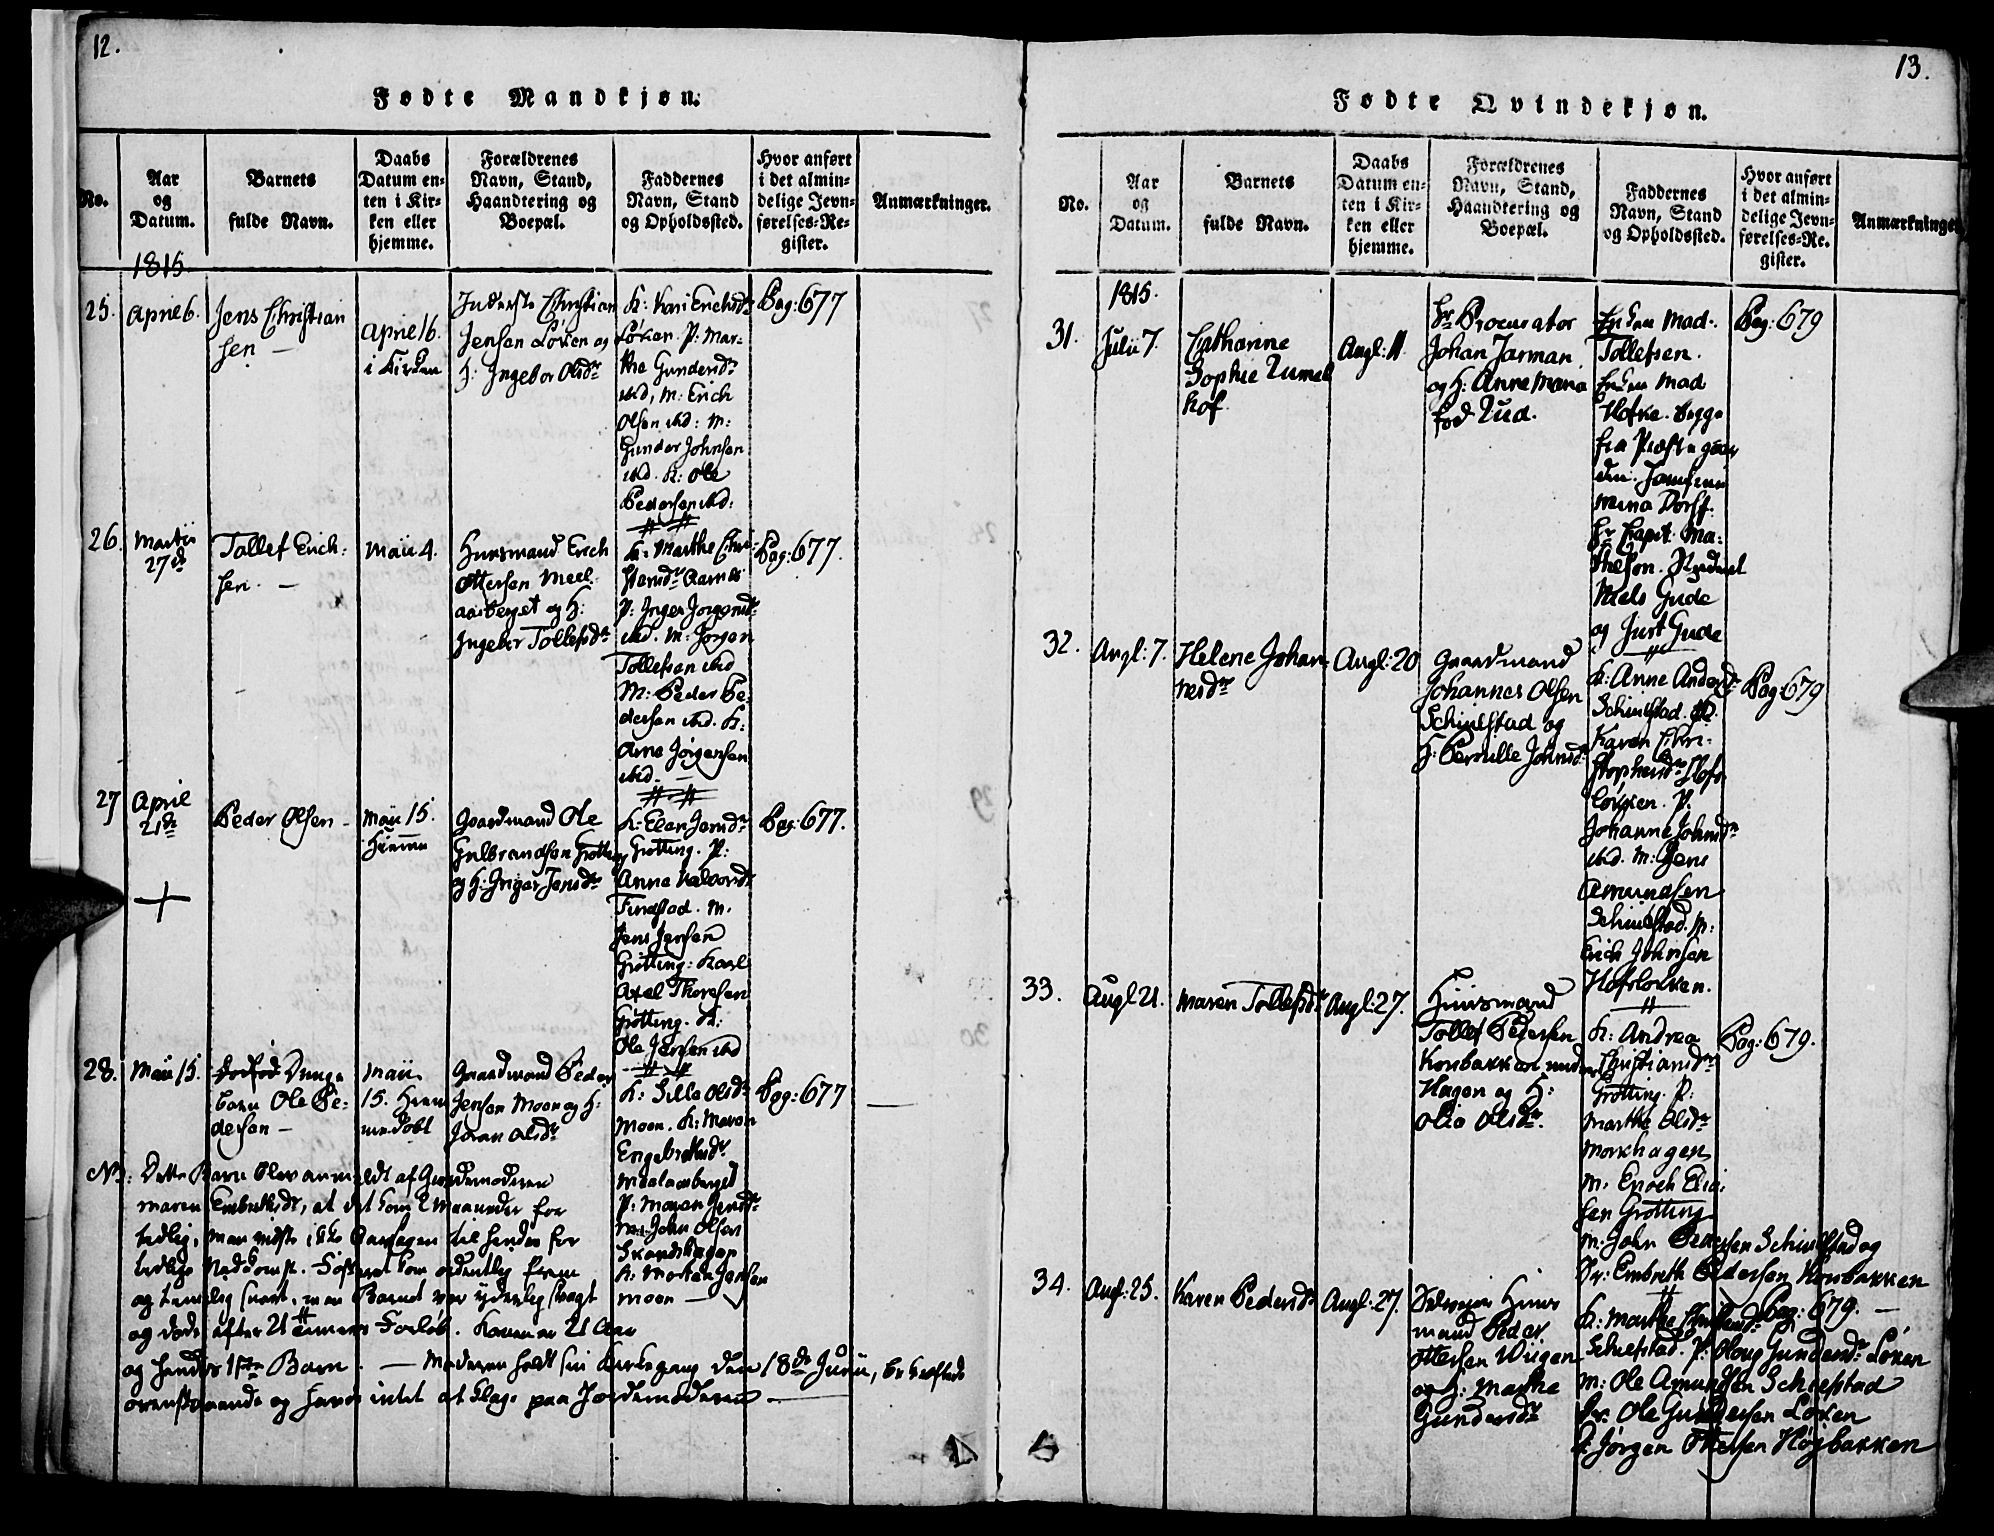 12.
Fødte Mandkjøn.
No.
Aar
og
Datum.
Barnets
fulde Navn.
Daabs
Datum en-
ten i Kir-
ken eller
hjemme.
Forældrenes
Navn, Stand,
Haandtering og
Boepæl.
Faddernes
Navn, Stand
og Opholdssted.
Hvor anført
i det almin-
delige Jevn-
førelses-Re-
gister.
Anmærkninger.
1815
25.
April 6.
Jens Christian
sen —
April 16.
i Kirken
Inderste Christian
Jensen Løken og
H: Ingebor Olsdr
K: Kari Erichsdr
Løken. P: Mar-
the Gundersdr
ibd, M: Erich
Olsen ibd: M:
Gunder Johnsen
ibd. K: Ole
Pedersen ibd:
Pag: 677
26.
Martii
27de
Tollef Erich-
sen. —
Maii 4.
Huusmand Erich
Ottersen Meel-
aasberget og H:
Ingebor Tollefsdr
K: Marthe Chri-
stensdr Aarnes
P: Inger Jørgensdr
ibd. M: Jørgen
Tollefsen ibd
M: Peder Pe-
dersen ibd. K:
Arne Jørgensen
ibd. —
Pag: 677.
27
April
21de
Peder Olsen —
Maii 15.
Hiemme
Gaardmand Ole
Gulbrandsen Grøtting
og H: Inger Jensdr
K: Elen Jensdr
Grøtting. P:
Anne Halvorsdr
Finstad. M.
Jens Jensen
Grøtting: Karl
Axel Thoresen
Grøtting. K:
Ole Jensen ibd
Pag: 677.
28.
Maii 15.
Dødfød Drenge
barn Ole Pe-
dersen —
Maii
15. Hiem
medøbt
Gaardmand Peder
Jensen Moen og H:
Joran Olsdr
K: Sille Olsdr
Moen. K: Maren
Engebrethsdr
Meelaasberget
P: Maren Jensdr
M: John Olsen
Strandskagen
K: Morten Jensen
Moen —
Pag: 677
NB: Dette Barn blev anmeldt af Giordemoderen
Maren Embrethsdr, at det kom 2 Maaneder for
tidlig, man vidste ikke Aarsagen til hendes for
tidlige Neddomst. Fosteret kom ordentlig frem
og temmelig snart, men Barnet var yderlig svagt
og døde efter 2 Timers Forløb. Konen er 21 Aar
og hendes 1ste Barn. — Moderen holdt sin Kirkegang den 18de Junii, bekræftede
ovenstaaende og havde intet at klage paa Jordemoderen —
13.
Fødte Qvindekjøn.
No.
Aar
og
Datum.
Barnets
fulde Navn.
Daabs
Datum en-
ten i Kir-
ken eller
hjemme.
Forældrenes
Navn, Stand,
Haandtering og
Boepæl.
Faddernes
Navn, Stand
og Opholdssted.
Hvor anført
i det almin-
delige Jevn-
førelses-Re-
gister.
Anmærkninger
1815.
31.
Julii 7.
Catharine
Sophie Tumel
hof.
Augl: 11.
Hr Procurator
Johan Jarman
og H: Anne Maria
fød Lud.
Enken Mad-
Tollefsen.
Enken Mad
Hofke. begge
fra Præstegaar
den. Jomfrue
Mina Dorff.
Hr Capit. Ma-
thesen.
Niels Gude
og Just Gude
Pag: 679
32.
Augl: 7.
Helene Johan-
nesdr
Augl: 20
Gaardmand
Johannes Olsen
Schiulstad og
H: Pernille Johnsdr
K: Anne Andersdr
Schiulstad. K.
Karen Chri-
stophersdr Hofs
løkken. P.
Johanne Johnsdr
ibd. M: Jens
Amundsen
Schiulstad. M:
Erich Johnsen
Hofsløkken.
Pag: 679
33.
Augl 21.
Maren Tollefsdr
Augl: 27.
Huusmand
Tollef Pedersen
Korsbakken under
Hagen og H:
Olia Olsdr.
K: Andrea
Christiansdr
Grøtting. P:
Marthe Olsdr
Morkhagen
M: Enoch Elia-
sen Grøtting
M: John Pedersen Schiulstad og
Br: Embreth Pedersen Korsbakken
Pag: 679.
34.
Augl: 25.
Karen Pedersdr
Augl: 27.
Selveier Huus
mand Peder
Ottersen Wiigen
og H: Marthe
Gundersdr
K: Marthe Christensdr
Pag: 679. —
Schiefstad. P: Oloug Gundersdr Løken
M: Ole Amundsen Schiefstad
Br: Ole Gundersen Løken
K: Jørgen Ottersen Høybakken